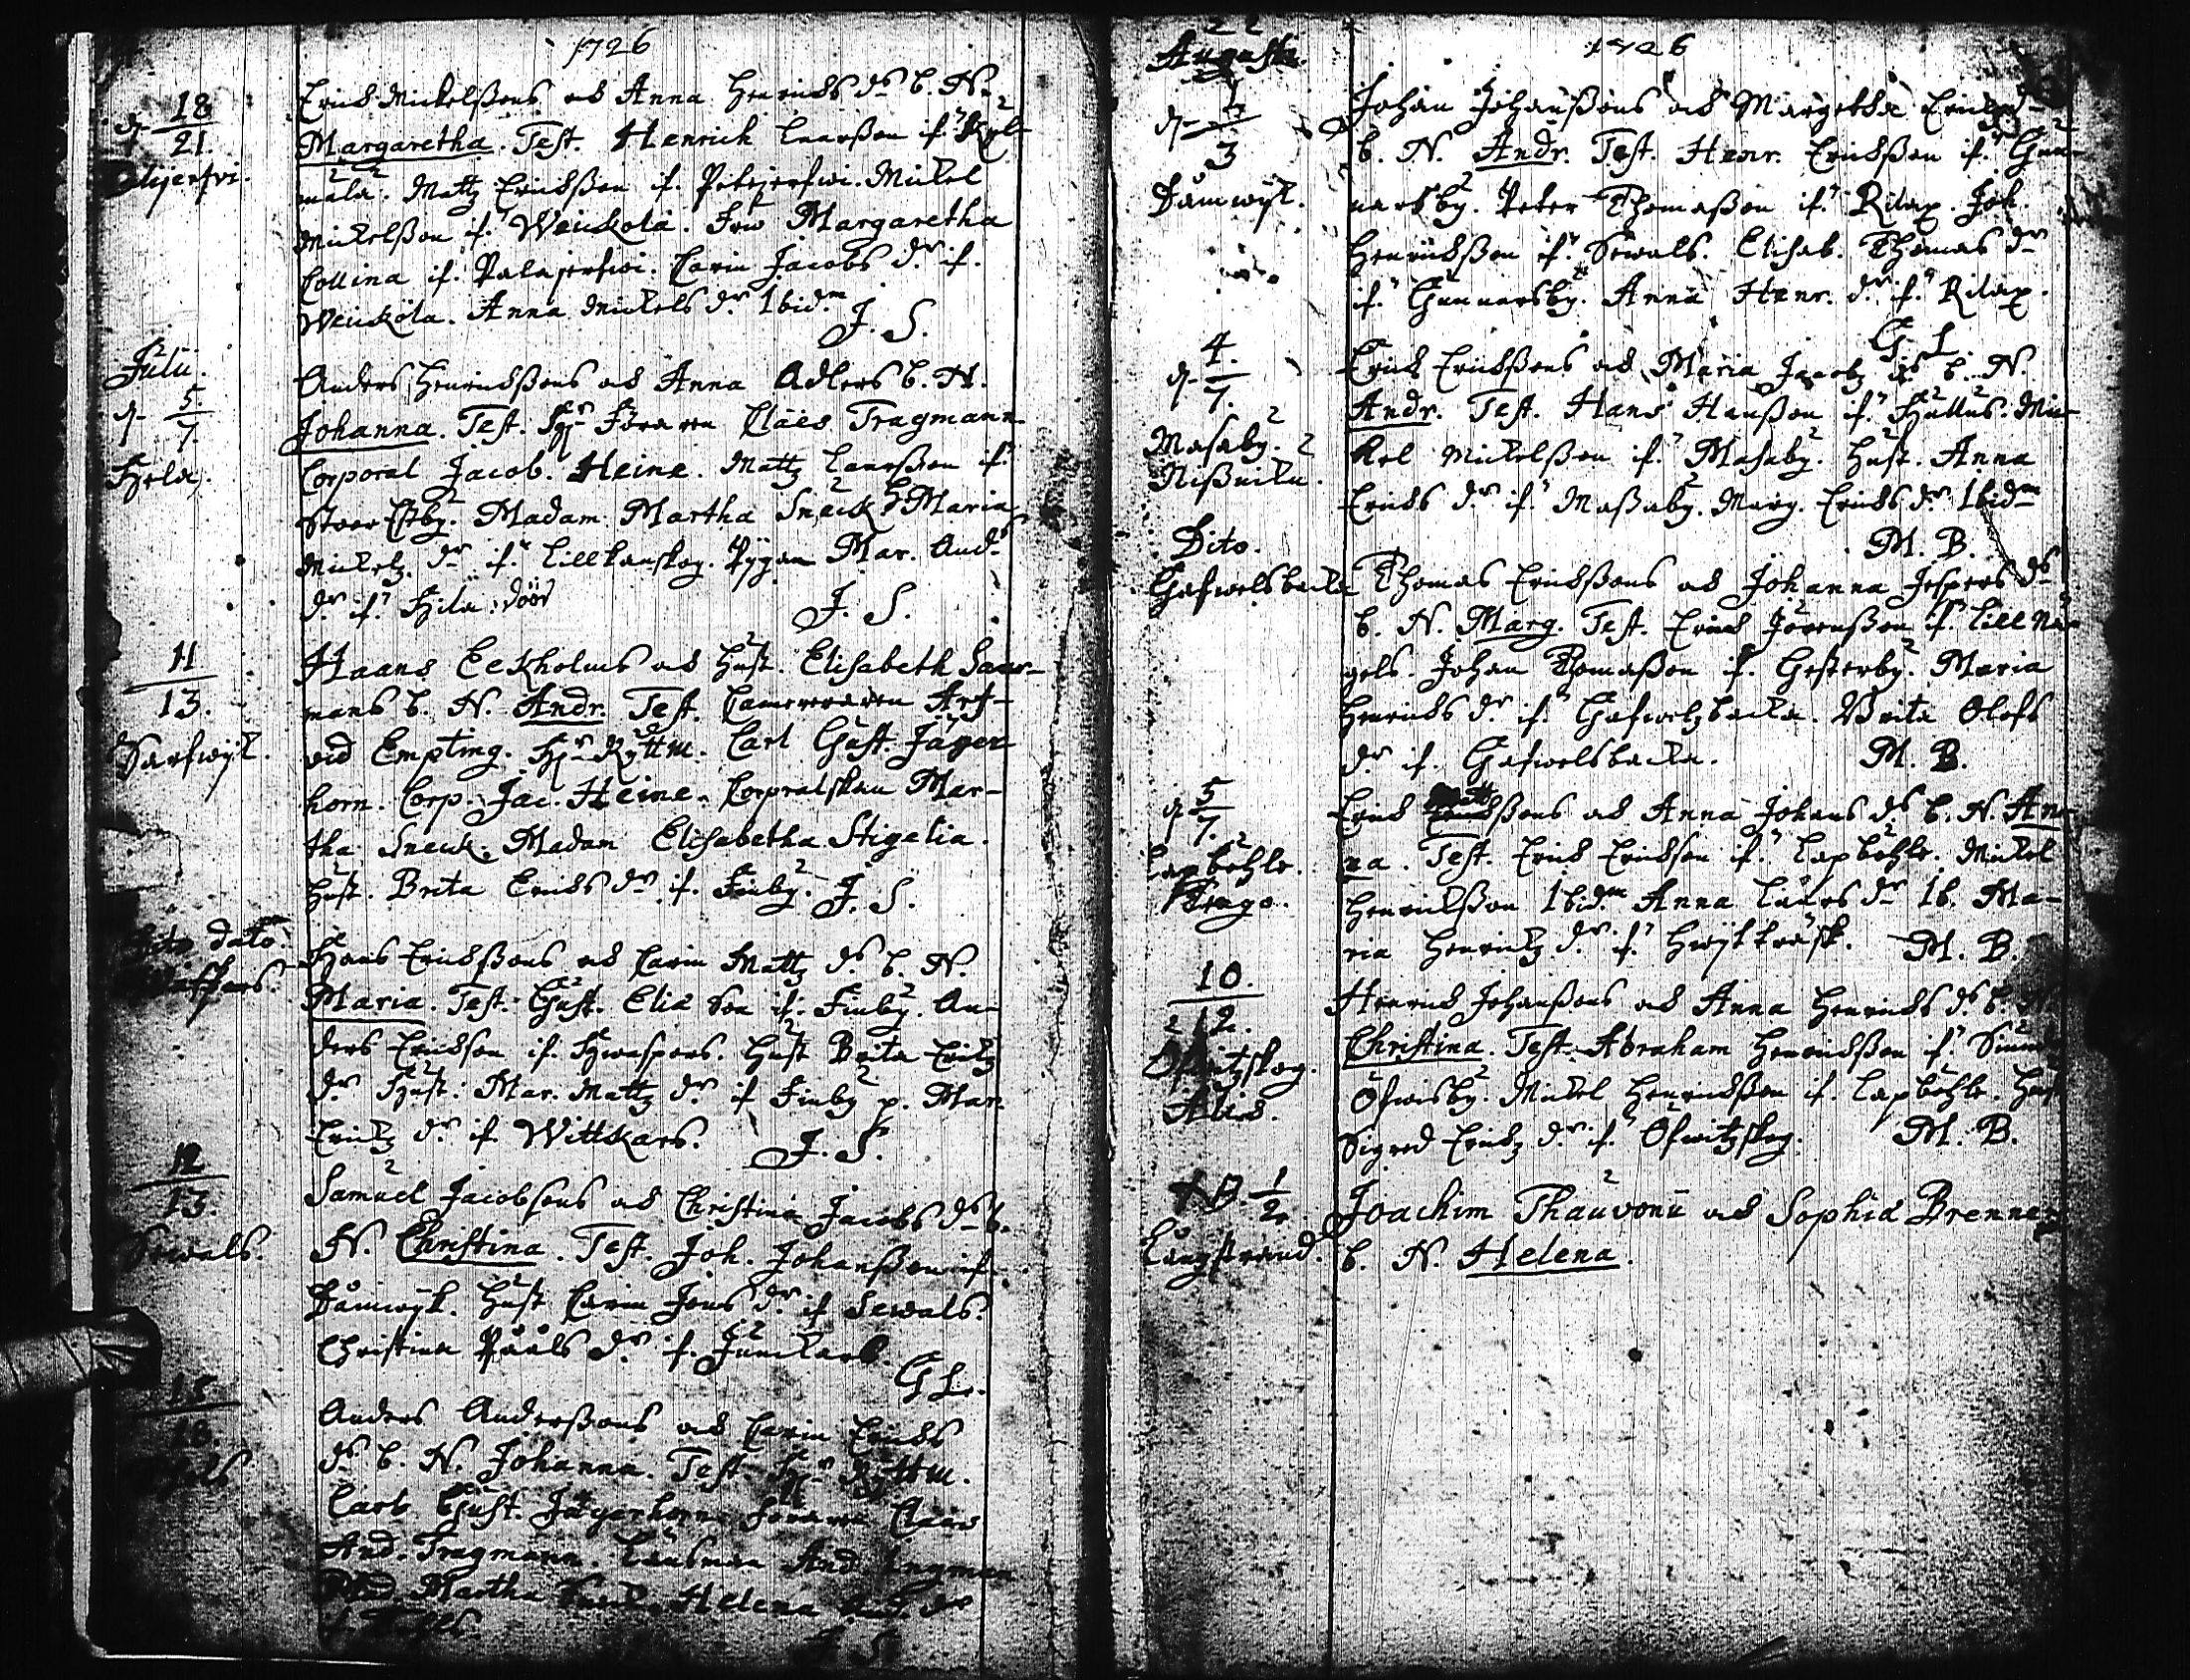 1726
18
d. 21.
Erick Mickelßons och Anna Henrichs dr b. N.
Margaretha. Test. Henrich Larßon if. Kyl-
måla. Mattz Erickßon if. Petjerfwi. Mickel
Mickelßon if. Weickola. Frw Margaretha
Collina if. Palajerfwi. Carin Jacobs dr if.
Weickola. Anna Mickels dr Ibidm
J. S.
Julii.
d. 5.
7.
Hyla.
Anders Henrickßons och Anna Adlers b. N.
Johanna. Test. Claës Tragmann.
Corporal Jacob Heine. Mattz Larßon if.
Stoor Madam Martha Sneck Maria
Mickelz dr if. Lillkanskog. Pygan Mar. And.
dr if. Hila. döör
J. S.
11
13.
Sarfwijk.
Haans Eekholms och Hust. Elisabeth Saar-
mans b. N. Andr. Test. Camereraren Arf-
vid Empting. Hr Ryttm. Carl Gust. Jäger-
horn. Corp. Jac. Heine. Corpralskan Mar-
tha Sneck. Madam Elisabetha Stigelia.
Hust. Brita Ericks dr if. Finby. J. S.
dato.
Hans Erickßons och Carin Mattz dr b. N.
Maria. Test. Gust. Eliæ Son if. Finby. An-
ders Erickson if. Hwaspers. Hust Brita Erickz
dr Hust. Mar. Mattz dr if Finby p. Mar.
Erickz dr if. Wittkars. J. S.
12
13.
Sewals.
Samuel Jacobsons och Christina Jacobs dr b.
N. Christina. Test. Joh. Johanßon if.
Dåmwijk. Hust Carin Jöns dr if Sewals.
Christina Pååls dr if. Junckars.
G L.
15
18.
Anders Anderßons och Carin Ericks
dr b. N. Johanna. Test. Hr Ryttm.
Carl Gust. Jägerhorn Claës
And. Tragmann. Länsman And Ingman
Mad. Martha Sneck. Helena And. dr
J. S.
1726
Augusti.
d. 1
3
Dåmwijk.
Johan Johanßons och Margetha Ericks
b. N. Andr. Test. Henr. Erickßon if. Gun-
narsby. Peter Thomaßon if. Rilax. Joh.
Henrickßon if. Sewals. Elisab. Thomas dr
if. Gunnarsby. Anna Henr. dr if. Rilax.
G L.
d. 4.
7.
Masaby.
Nißnicku.
Erick Erickßons och Maria Jacobz dr b. N.
Andr. Test. Hans Hanßon if. Huttus. Mic-
kel Mickelßon if. Masaby. Hust. Anna
Ericks dr if. Maßaby. Marg. Ericks dr Ibidm
M. B.
Dito.
Gafwelsbacka
Thomas Erickßons och Johanna Jespers dr
b. N. Marg. Test. Erick Jörenßon if. Lill Nä-
gels. Johan Thomaßon if. Gesterby. Maria
Henricks dr if. Gafwelzbacka. Brita Olofs
dr if. Gafwelsbacka. M. B.
d. 5
7.
Lapböhle.
Erick Mattßons och Anna Johans dr b. N. An-
na. Test. Erick Erickson if. Lapböhle. Mickel
Henrickßon Ibidm Anna Lars dr Ib. Ma-
ria Henrickz dr if. Hwijtträsk. M. B.
10.
12.
Öfwitzskog.
Henrick Johanßons och Anna Henricks dr b. N
Christina. Test. Abraham Henrickßon if. Sund
Öfwisby. Mickel Henrickßon if. Lapböhle. Hust
Sigred Erickz dr if. Öfwitzskog. M. B.
NB. 1
2
Långstrand.
Joachim Thauvonii och Sophia Brenner
b. N. Helena.